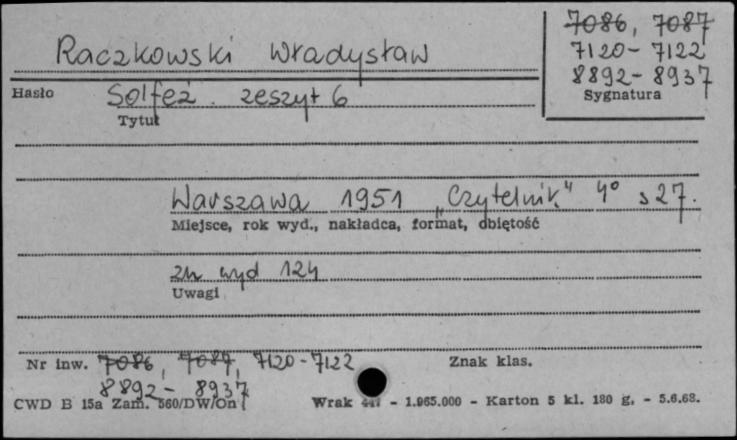 7086, 7087
7120-7122
8892-8937
Sygnatura
Raczkowski Władysław
Hasło Solfeż. zeszyt 6
Tytuł
Warszawa 1951 „Czytelnik" 4° s 27.
Miejsce, rok wyd., nakładca, format, objętość
zn wyd 124
Uwagi
Nr inw. 7086, 7087, 7120-7122 Znak klas.
8892- 8937
CWD B 15a Zam. 560/DW/On Wrak 447 - 1.965.000 - Karton 5 kl. 180 g. - 5.6.68.